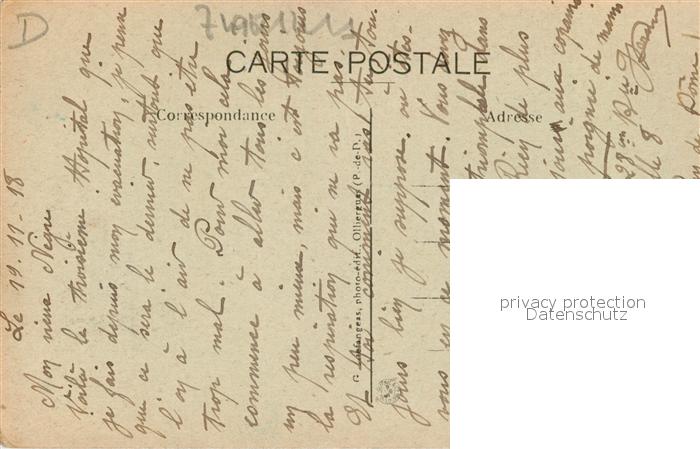 D
74961213
CARTE POSTALE
Correspondance
Adresse
Le 19-11-18
Mon vieux Nègre
Voilà le troisième Hôpital que
je fais depuis mon évacuation, je pense
que ce sera le dernier, surtout que
l'on a l'air de ne pas être
trop mal. Pour moi cela
commence à aller tous les jours
un peu mieux, mais c'est toujours
la respiration qui ne va pas.
Et toi comment vas-tu tou-
jours bien je suppose. où êtes-
vous en ce moment. Vous
triomphale dans
Rien de plus
aux copains
poignée de mains
G. Lafangeas, photo-édit., Olliergues (P.-de-D.)
privacy protection
Datenschutz